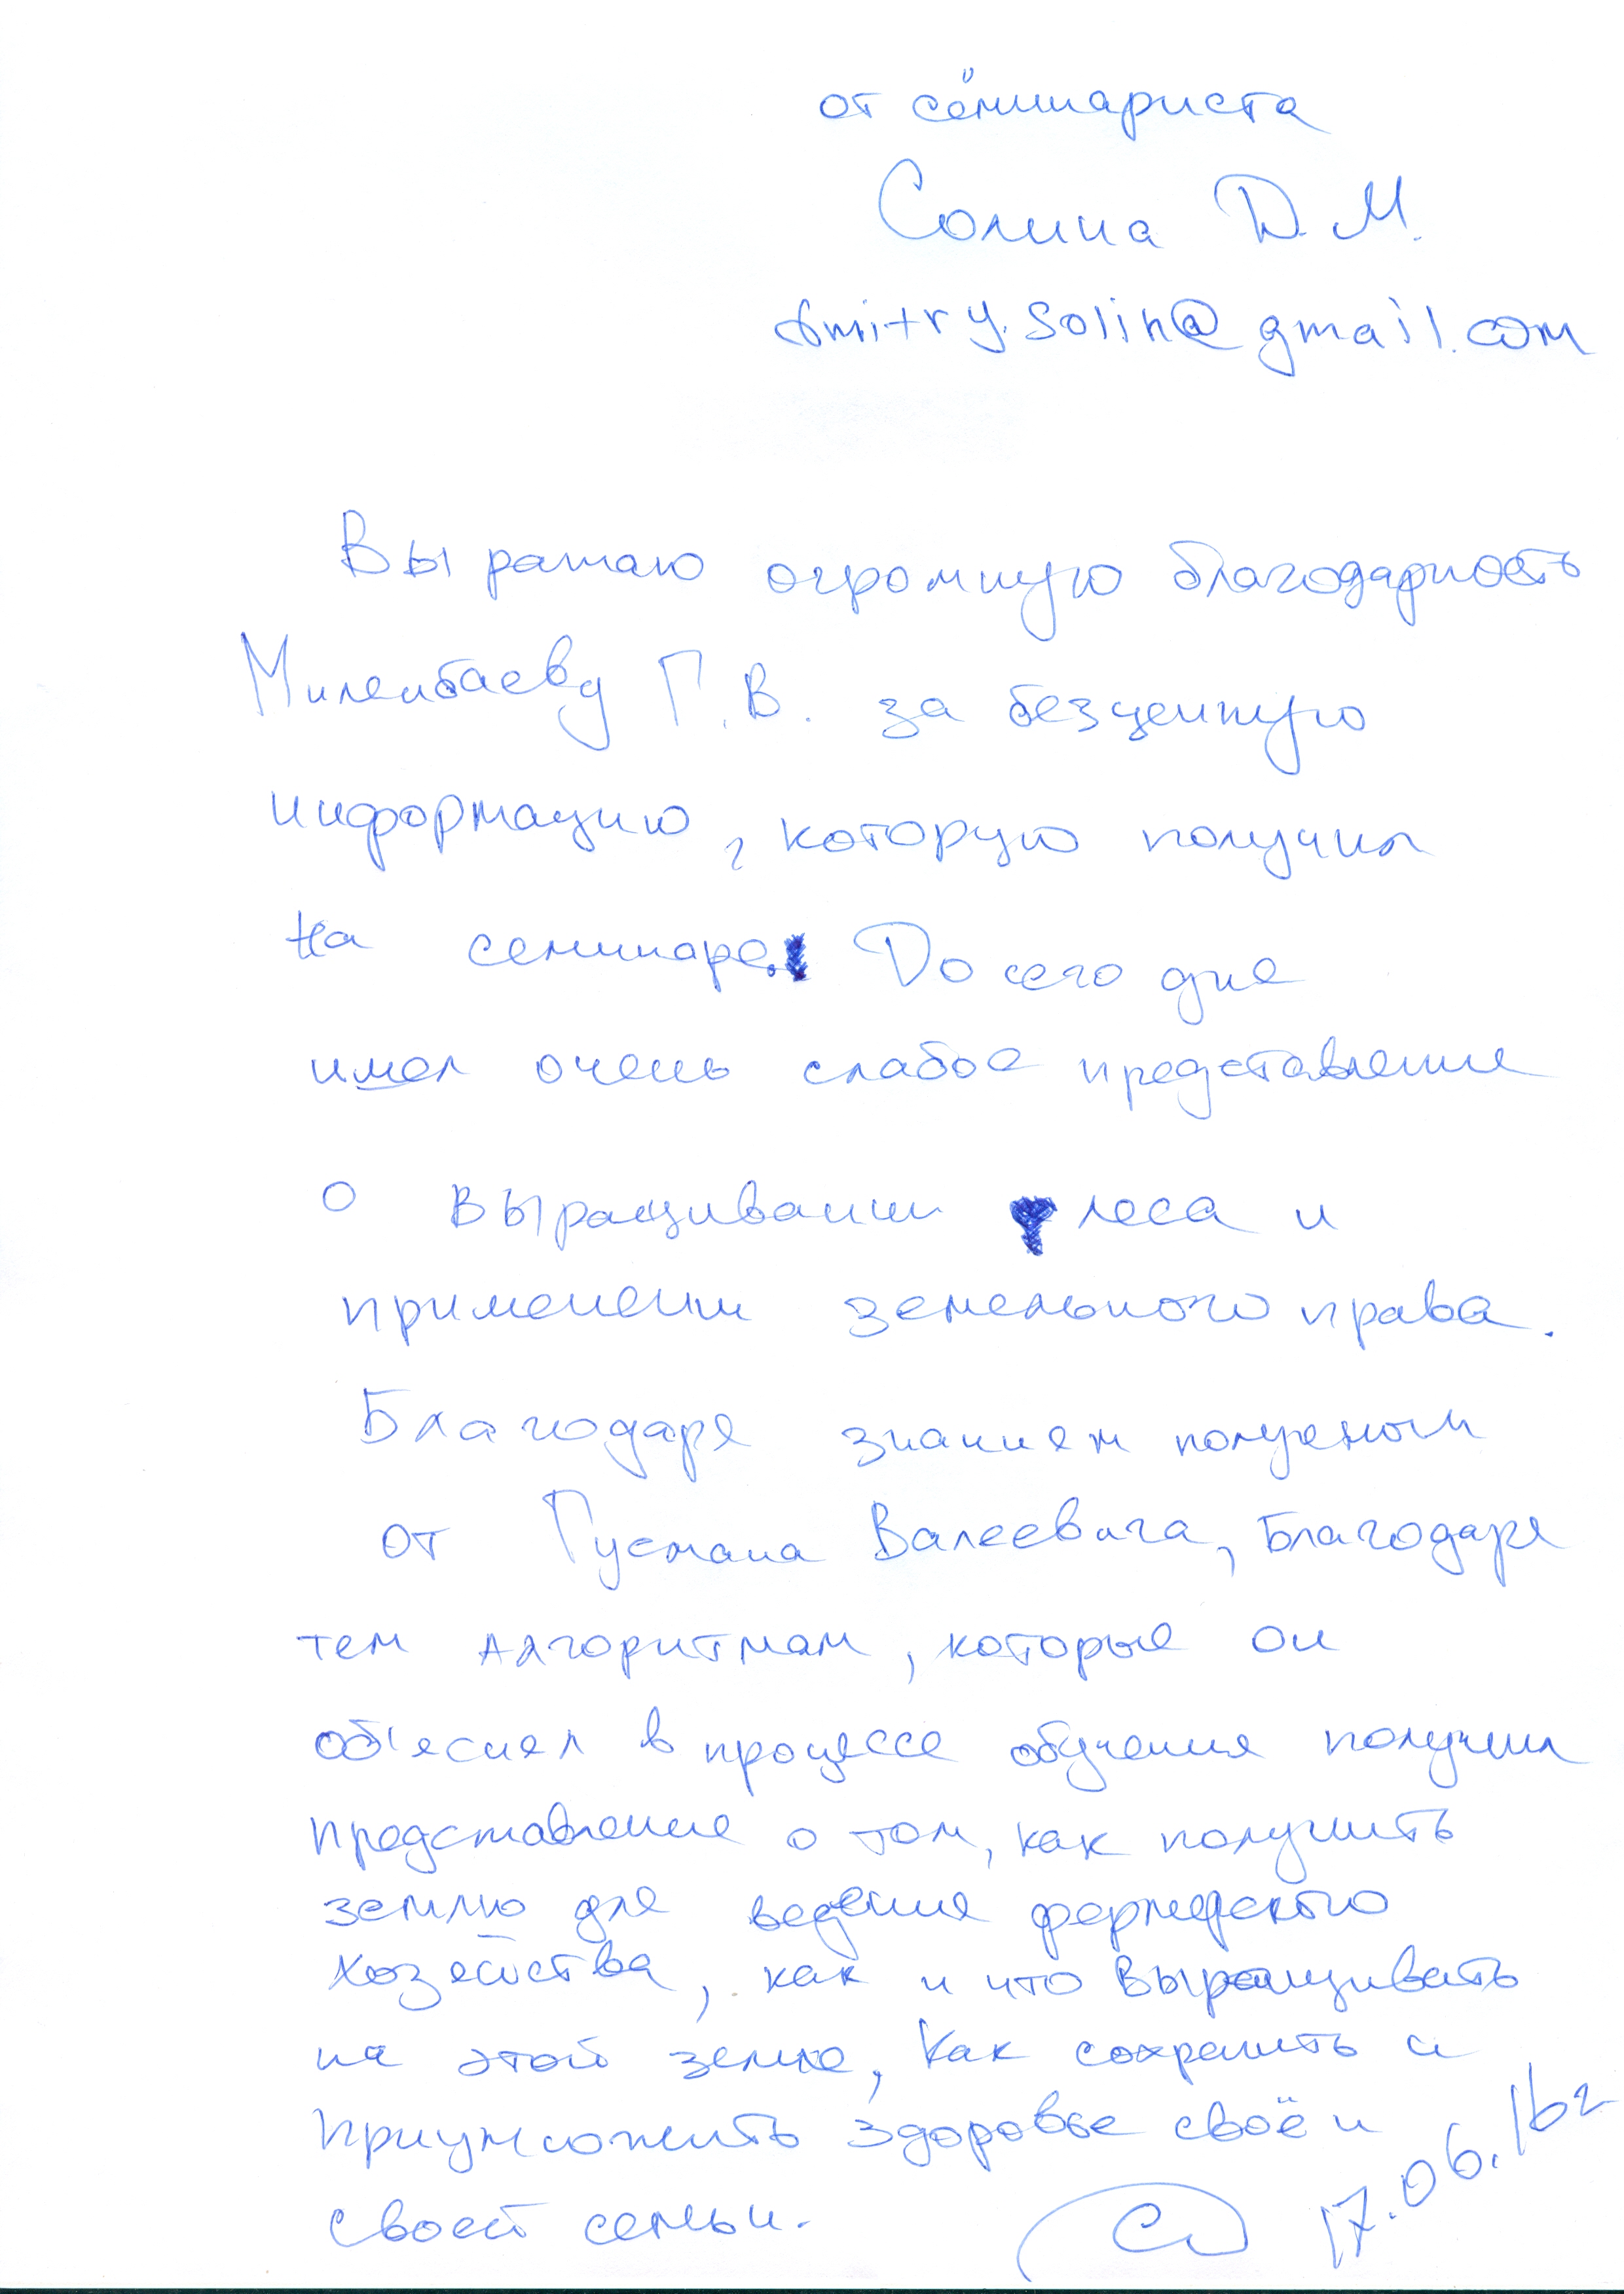 от семинариста
Солина Д.М.
dmitry.solin@gmail.com
Выражаю огромную благодарность
Миленбаеву Г.В. за безценную
информацию, которую получил
на семинаре. До сего дня
имел очень слабое представление
о выращивании леса и
применении земельного права.
Благодаря знаниям полученом
от Гусмана Валеевича, Благодаря
тем алгоритмам, которые он
об'яснял в процессе обучения получил
представление о том, как получить
землю для ведения фермерского
хозяйства, как и что выращивать
на этой земле, как сохранить и
приумножить здоровье своё и
своей семьи.
17.06.16г